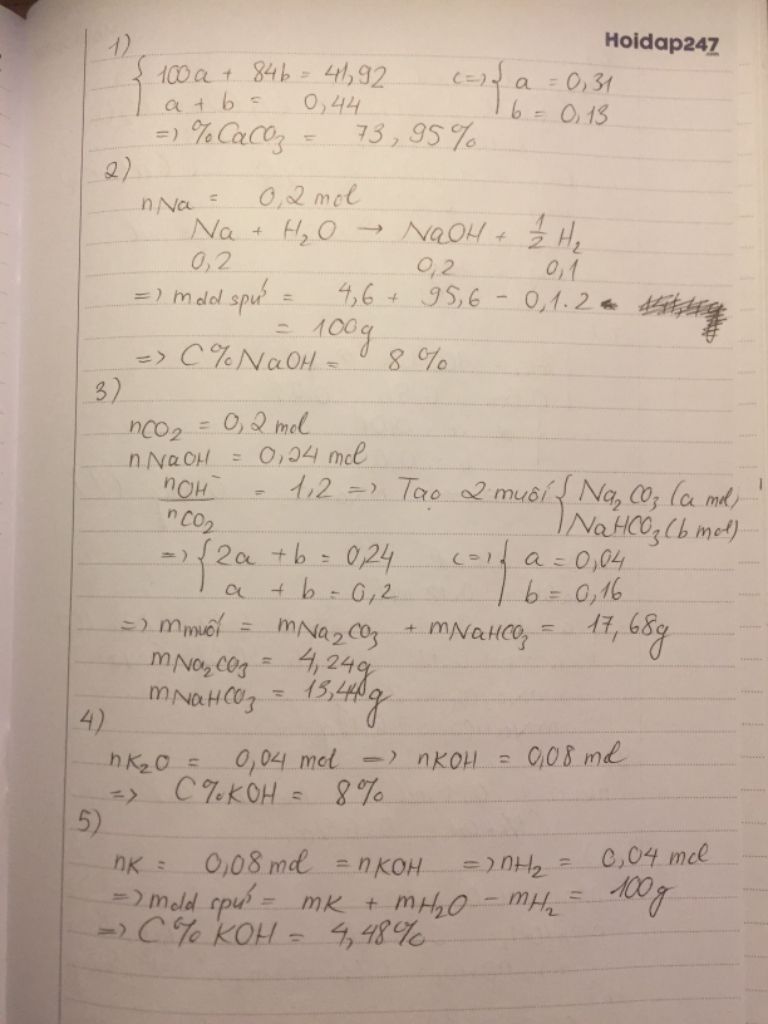 Hoidap247
1)
{ 100a + 84b = 41,92 <=> { a = 0,31
a + b = 0,44 b = 0,13
=> %CaCO3 = 73,95%
2)
nNa = 0,2 mol
Na + H2O → NaOH + 1/2 H2
0,2 0,2 0,1
=> mdd spứ = 4,6 + 95,6 - 0,1.2
= 100g
=> C%NaOH = 8%
3)
nCO2 = 0,2 mol
nNaOH = 0,24 mol
nOH⁻/nCO2 = 1,2 => Tạo 2 muối { Na2CO3 (a mol)
NaHCO3 (b mol)
=> { 2a + b = 0,24 <=> { a = 0,04
a + b = 0,2 b = 0,16
=> mmuối = mNa2CO3 + mNaHCO3 = 17,68g
mNa2CO3 = 4,24g
mNaHCO3 = 13,44g
4)
nK2O = 0,04 mol => nKOH = 0,08 mol
=> C%KOH = 8%
5)
nK = 0,08 mol = nKOH => nH2 = 0,04 mol
=> mdd spứ = mK + mH2O - mH2 = 100g
=> C% KOH = 4,48%